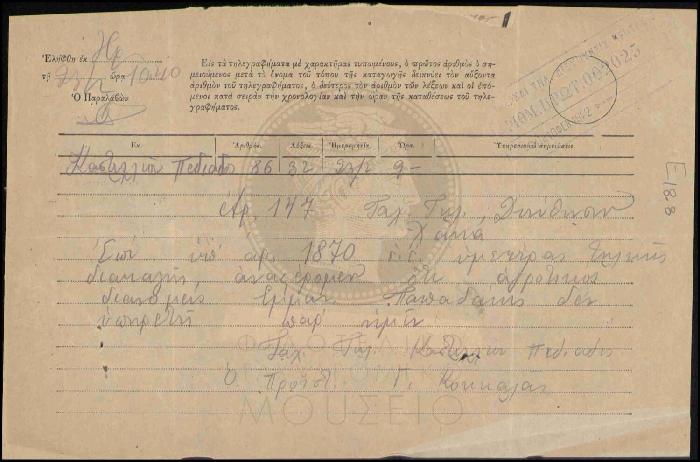 Ἐλήφθη ἐκ Ηρ
τῇ 23/2 ὥρα 10.40
Ὁ Παραλαβὼν
Εἰς τὰ τηλεγραφήματα μὲ χαρακτῆρας τυπωμένους, ὁ πρῶτος ἀριθμὸς ὁ ση-
μειούμενος μετὰ τὸ ὄνομα τοῦ τόπου τῆς καταγωγῆς δεικνύει τὸν αὔξοντα
ἀριθμὸν τοῦ τηλεγραφήματος, ὁ δεύτερος τὸν ἀριθμὸν τῶν λέξεων καὶ οἱ ἑπό-
μενοι κατὰ σειρὰν τὴν χρονολογίαν καὶ τὴν ὥραν τῆς καταθέσεως τοῦ τηλε-
γραφήματος.
002025
Ἐκ Ἀριθμὸς Λέξεις Ἡμερομηνία Ὥρα Ὑπηρεσιακαὶ σημειώσεις
Καστελλίου Πεδιάδος 86 32 9
Αρ. 147 Ταχ. Τηλ. Διεύθυνσιν
Χανιά
Επί υπ αρ. 1870 ε.ε. υμετέρας τηλ/κής
διαταγής αναφέρομεν ότι αγροτικός
διανομεύς Εμμαν. Παπαδάκης δεν
υπηρετή παρ' ημίν
Ταχ. Τηλ. Καστελλίου Πεδιάδος
Ο Προϊστ. Γ. Κόκκαλας
ΜΟΥΣΕΙΟ
E188